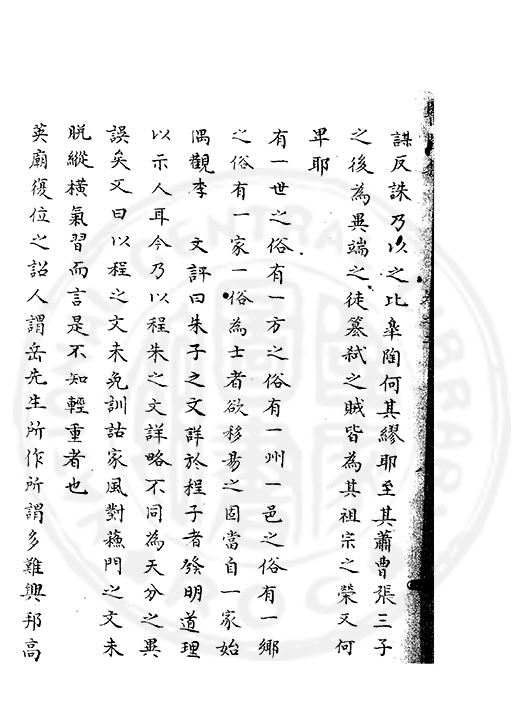 謀反誅乃以之比臯陶何其繆耶至其蕭曹張三子
之後為異端之徒簒弑之賊皆為其祖宗之榮又何
畀耶
有一世之俗有一方之俗有一州一邑之俗有一鄉
之俗有一家一俗為士者欲移易之固當自一家始
偶觀李 文評曰朱子之文詳於程子者發明道理
以示人耳今乃以程朱之文詳略不同為天分之異
誤矣又曰以程之文未免訓詁家風對蘓門之文未
脱縱横氣習而言是不知輕重者也
英廟復位之詔人謂岳先生所作所謂多難興邦高